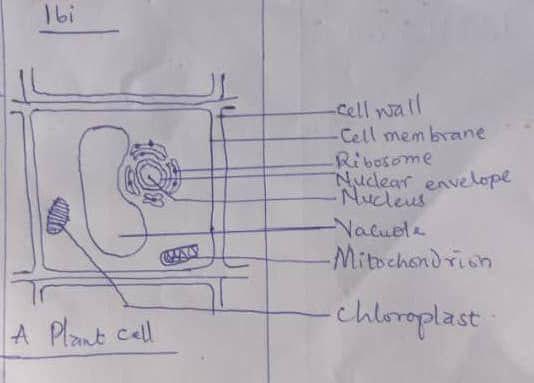 1bi
Cell wall
Cell membrane
Ribosome
Nuclear envelope
Nucleus
Vacuole
Mitochondrion
Chloroplast
A Plant Cell